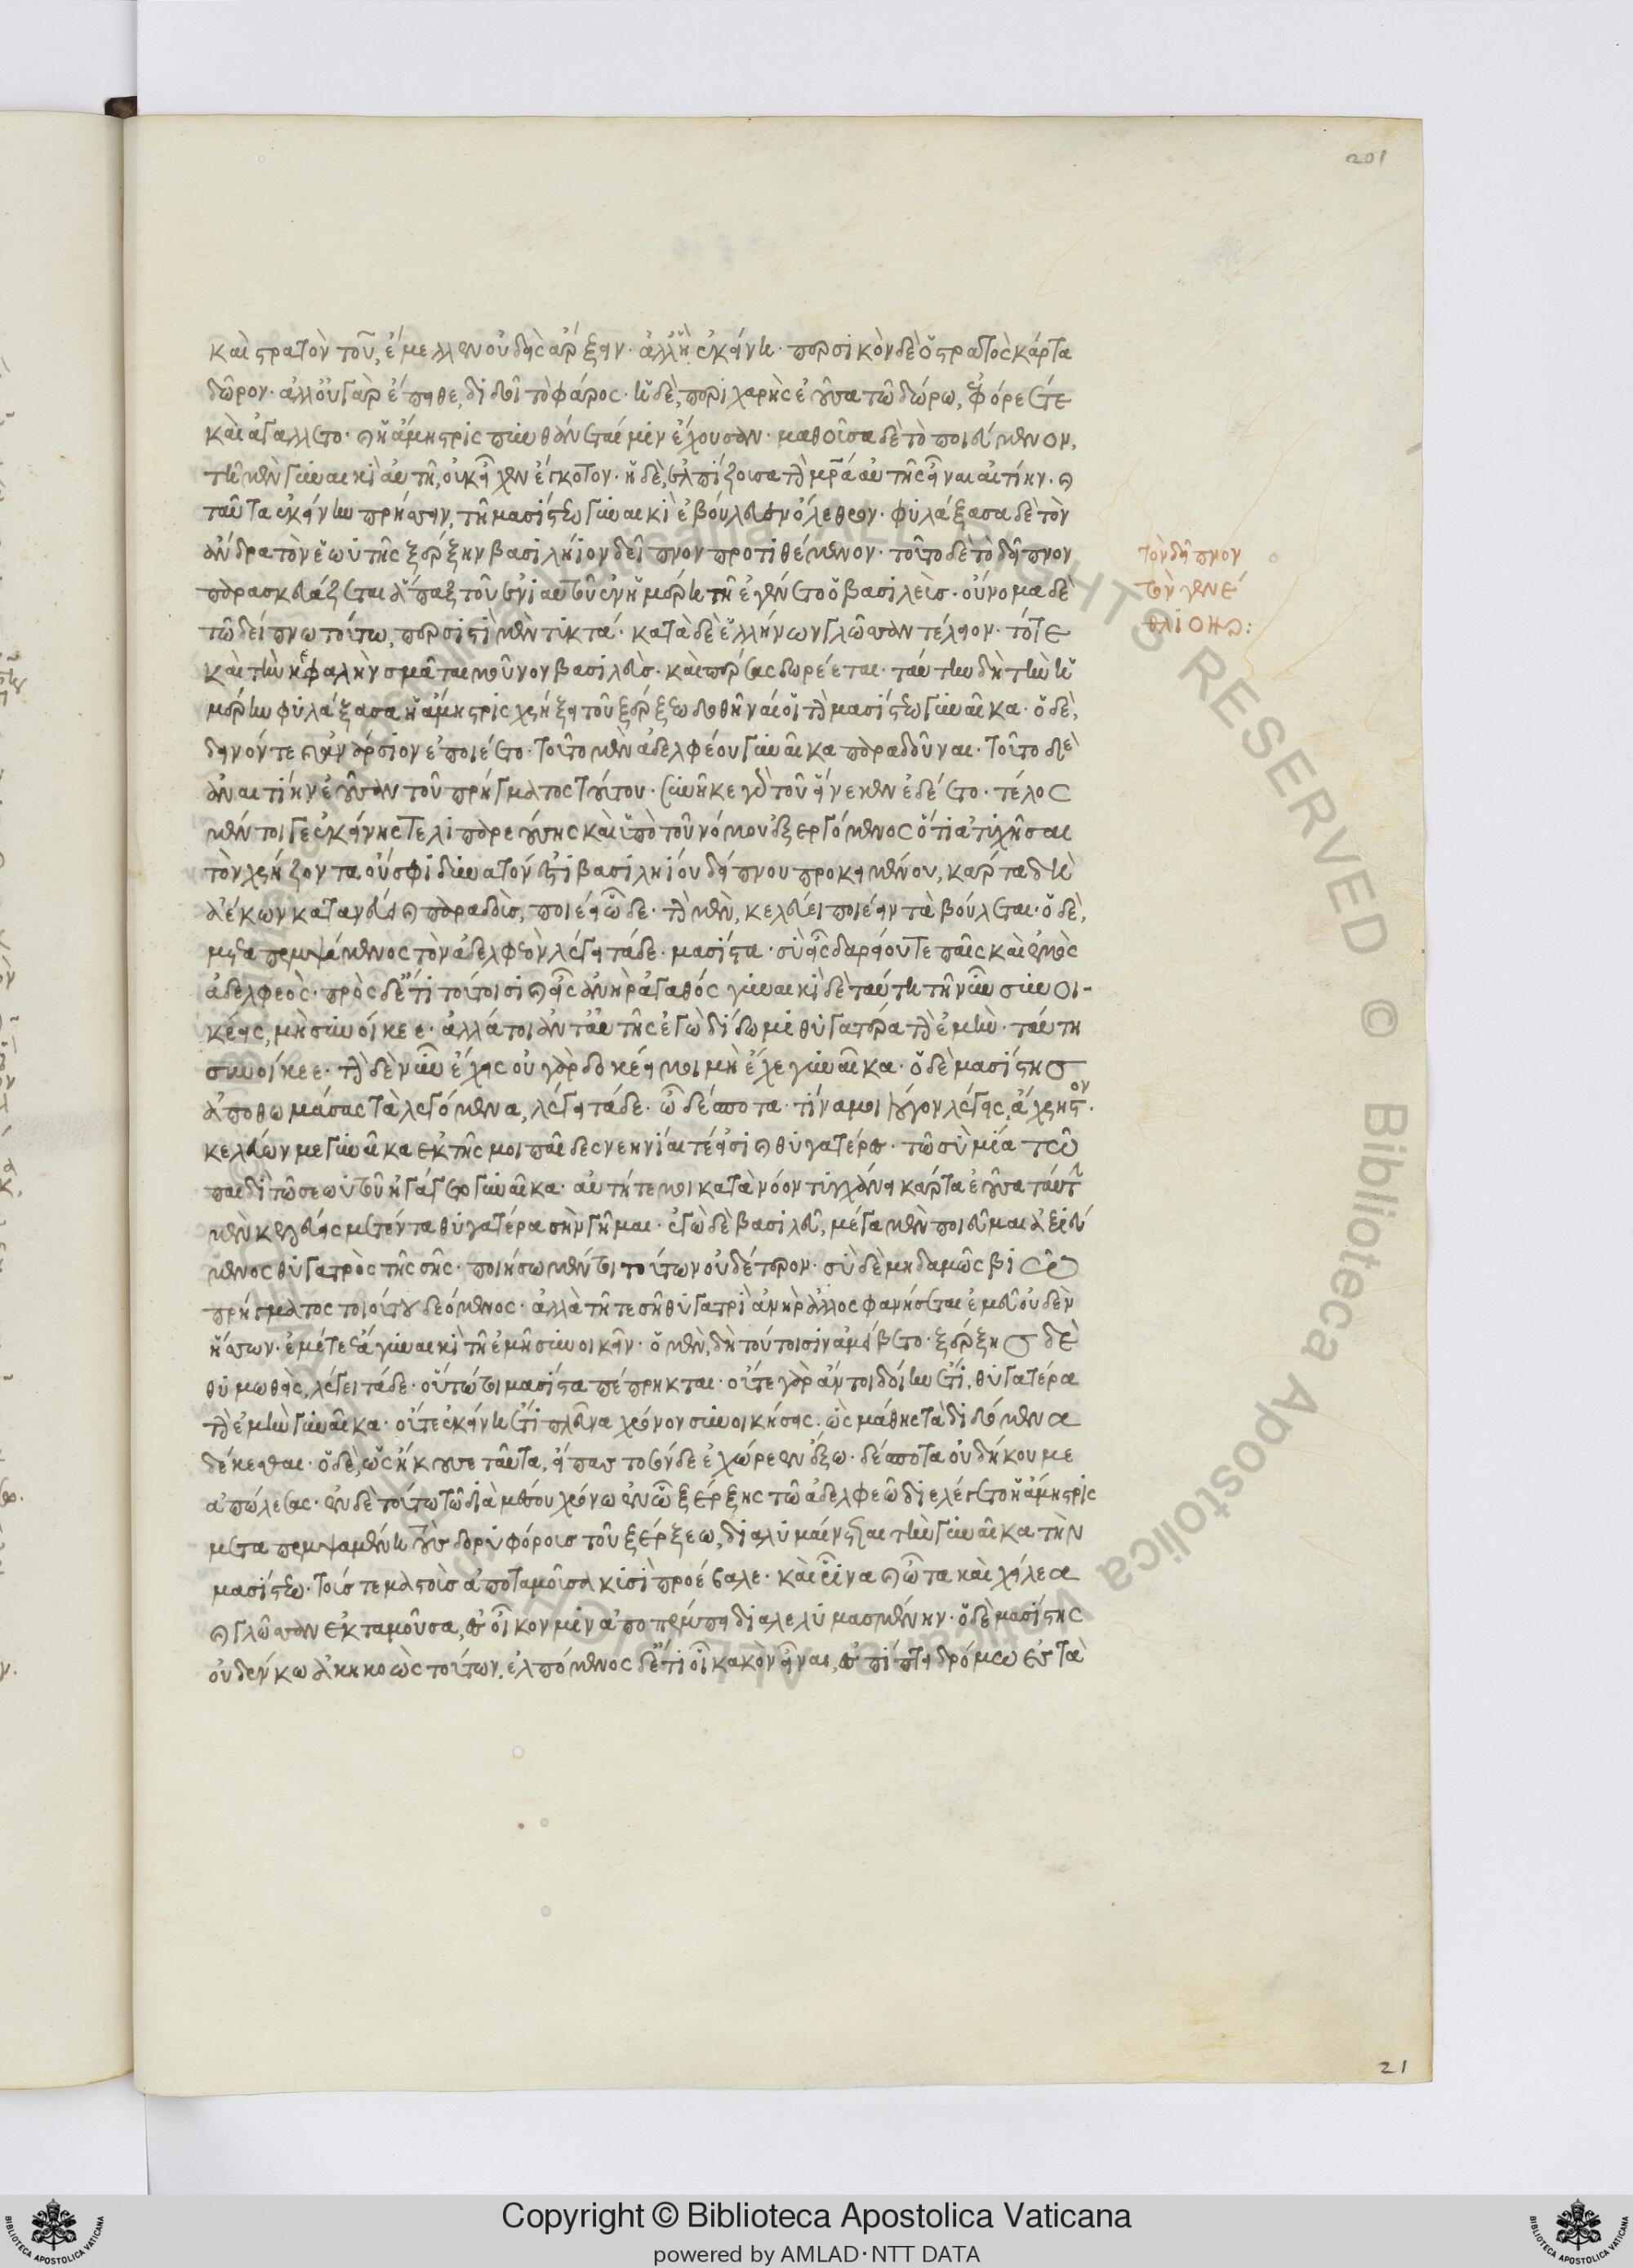 201
καὶ στρατὸν τοῦ ἔμελλεν οὐδεὶς ἄρξειν· ἀλλ' ἢ ἐκείνη· περσικὸν δὲ ὁ στρατὸς κάρτα
δῶρον· ἀλλ' οὐ γὰρ ἔπειθε, διδοῖ τὸ φᾶρος· ἡ δὲ, περιχαρὴς ἐοῦσα τῶ δώρω, ἐφόρεέ τε
καὶ ἀγάλλετο· καὶ ἡ ἄμηστρις πυνθάνεταί μιν ἔχουσαν· μαθοῦσα δὲ τὸ ποιεύμενον,
τῆ μὲν γυναικὶ αὐτῆ, οὐκ εἶχεν ἔγκοτον· ἡ δὲ, ἐλπίζουσα τὴν μητέρα αὐτῆς εἶναι αἰτίην· καὶ
ταῦτα ἐκείνην πρήσσειν, τῆ μασίστεω γυναικὶ ἐβούλευεν ὄλεθρον· φυλάξασα δὲ τὸν
ἄνδρα τὸν ἑωυτῆς ξέρξην βασιλήϊον δεῖπνον προτιθέμενον· τοῦτο δὲ τὸ δεῖπνον
παρασκευάζεται ἅπαξ τοῦ ἐνιαυτοῦ ἐν ἡμέρη τῆ ἐγένετο ὁ βασιλεὺς· οὔνομα δὲ
τῶ δείπνω τούτω, περσιστὶ μὲν τικτά· κατὰ δὲ ἑλλήνων γλῶσσαν τέλειον· τότε
καὶ τὴν κεφαλὴν σμᾶται μοῦνον βασιλεὺς· καὶ πέρσας δωρέεται· ταύτην δὴ τὴν ἡ
μέρην φυλάξασα ἡ ἄμηστρις χρήζει τοῦ ξέρξεω δοθῆναί οἱ τὴν μασίστεω γυναῖκα· ὁ δὲ,
δεινόν τε καὶ ἀνάρσιον ἐποιέετο· τοῦτο μὲν ἀδελφέου γυναῖκα παραδοῦναι· τοῦτο δὲ
ἀναιτίην ἐοῦσαν τοῦ πρήγματος τούτου· συνῆκε γὰρ τοῦ εἵνεκεν ἐδέετο· τέλος
μέντοι γε ἐκείνης τε λιπαρεούσης καὶ ὑπὸ τοῦ νόμου ἐξεργόμενος ὅτι ἀτυχῆσαι
τὸν χρήζοντα οὔ σφι δυνατόν ἐστι βασιληίου δείπνου προκειμένου, κάρτα δὴ
ἀέκων κατανεύει καὶ παραδοὺς, ποιέει ὧδε· τὴν μὲν, κελεύει ποιέειν τὰ βούλεται· ὁ δὲ,
μεταπεμψάμενος τὸν ἀδελφεὸν λέγει τάδε· μασίστα· σὺ εἶς δαρείου τε παῖς καὶ ἐμὸς
ἀδελφεὸς· πρὸς δ' ἔτι τούτοισι καὶ εἶς ἀνὴρ ἀγαθός γυναικὶ δὲ ταύτη τῆ νῦν συνοι-
κέεις, μὴ συνοίκεε· ἀλλά τοι ἀντ' αὐτῆς ἐγὼ δίδωμι θυγατέρα τὴν ἐμὴν· ταύτη
συνοίκεε· τὴν δὲ νῦν ἔχεις οὐ γὰρ δοκέει μοι μὴ ἔχε γυναῖκα· ὁ δὲ μασίστης
ἀποθωμάσας τὰ λεγόμενα, λέγει τάδε· ὦ δέσποτα· τίνα μοι λόγον λέγεις, ἄχρηστον·
κελεύων με γυναῖκα ἐκ τῆς μοι παῖδες νεηνίαι τέ εἰσι καὶ θυγατέρες· τῶ σὺ μία τῶ
παιδὶ τῶ σεωυτοῦ ἠγάγεο γυναῖκα· αὐτή τέ μοι κατὰ νόον τυγχάνει κάρτα ἐοῦσα ταύτην
μὲν κελεύεις μετέντα θυγατέρα σὴν γῆμαι· ἐγὼ δὲ βασιλεῦ, μέγα μὲν ποιεῦμαι ἀξιεύ
μενος θυγατρὸς τῆς σῆς· ποιήσω μέντοι τούτων οὐδέτερον· σὺ δὲ μηδαμῶς βιῶ
πρήγματος τοιοῦδε δεόμενος· ἀλλὰ τῆ τε σῆ θυγατρὶ ἀνὴρ ἄλλος φανήσεται ἐμεῦ οὐδὲν
ἥσσων· ἐμέ τε ἔα γυναικὶ τῆ ἐμῆ συνοικεῖν· ὁ μὲν, δὴ τούτοισιν ἀμείβετο· ξέρξης δὲ
θυμωθεὶς, λέγει τάδε· οὕτω τοι μασίστα πέπρηκται· οὔτε γὰρ ἄν τοι δοίην ἔτι, θυγατέρα
τὴν ἐμὴν γυναῖκα· οὔτε ἐκείνη ἔτι πλεῦνα χρόνον συνοικήσεις· ὡς μάθης τὰ διδόμενα
δέκεσθαι· ὁ δὲ, ὡς ἤκουσε ταῦτα, εἴπας τοσόνδε ἐχώρεεν ἔξω· δέσποτα οὐ δή κού με
ἀπώλεσας· ἐν δὲ τούτω τῶ διὰ μέσου χρόνω ἐν ὧ ξέρξης τῶ ἀδελφεῶ διελέγετο ἡ ἄμηστρις
μεταπεμψαμένη τοὺς δορυφόρους τοῦ ξέρξεω, διαλυμαίνεται τὴν γυναῖκα τὴν
μασίστεω· τούς τε μαστοὺς ἀποταμοῦσα κυσὶ προέβαλε· καὶ ῥῖνα καὶ ὦτα καὶ χείλεα
καὶ γλῶσσαν ἐκταμοῦσα, ἐς οἶκόν μιν ἀποπέμπει διαλελυμασμένην· ὁ δὲ μασίστης
οὐδέν κω ἀκηκοὼς τούτων, ἐλπόμενος δέ τί οἱ κακὸν εἶναι, ἐσπίπτει δρόμω ἐς τὰ
τὸν δεῖπνον
τὸν γενέ
θλιον:
21
Copyright © Biblioteca Apostolica Vaticana
powered by AMLAD·NTT DATA